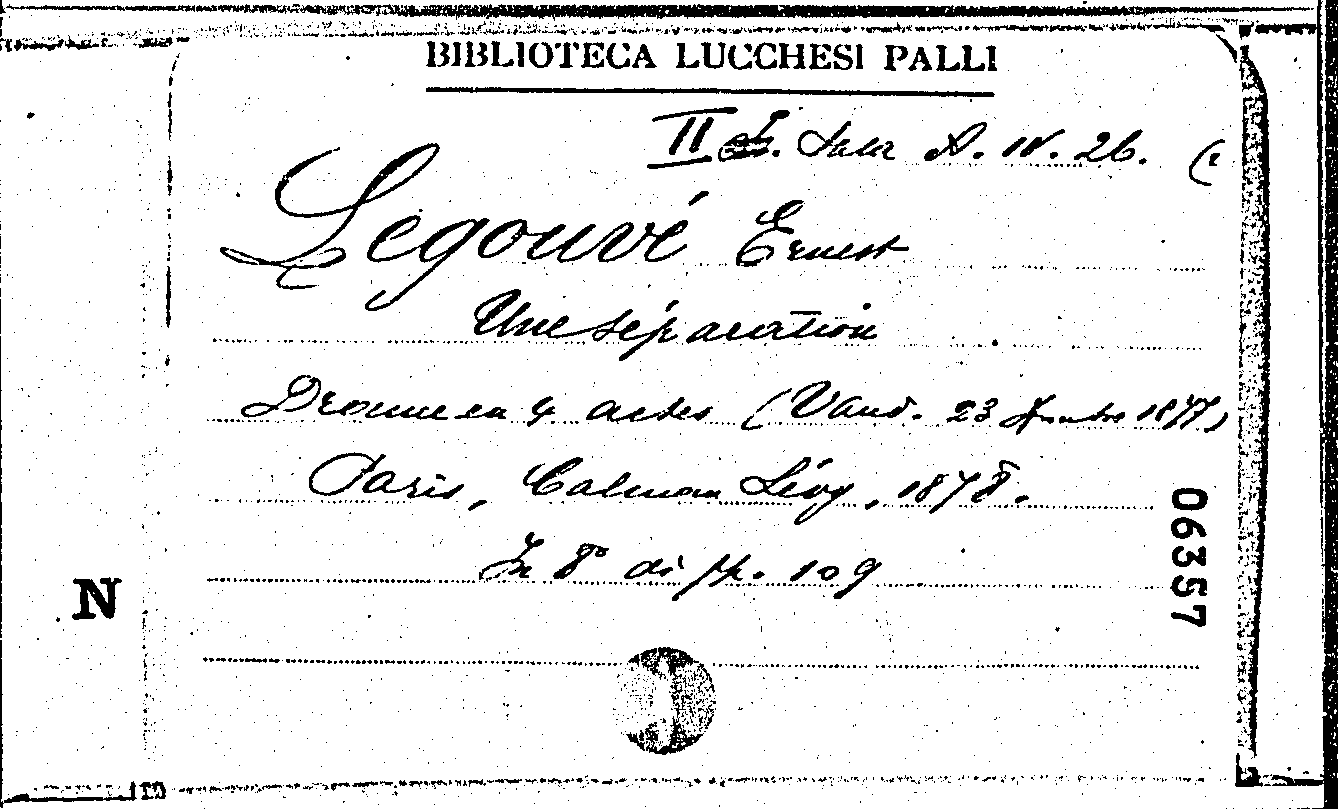 BIBLIOTECA LUCCHESI PALLI
II Sala A. IV. 26. (
Legouvé Ernest
Une séparation
Drame en 4 actes (Vaud. 23 1877)
Paris, Calman Lévy, 1878.
In 8° di pp. 109
06357
N